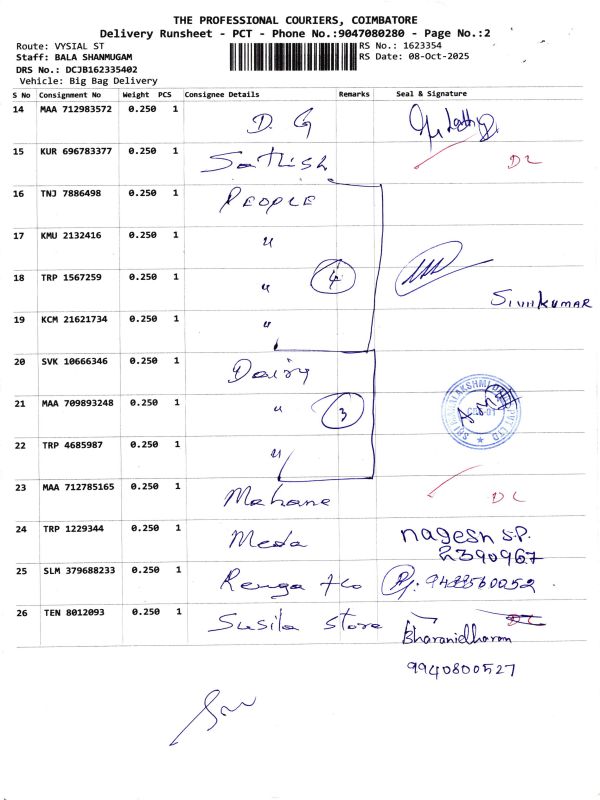 THE PROFESSIONAL COURIERS, COIMBATORE
Delivery Runsheet - PCT - Phone No.:9047080280 - Page No.:2
Route: VYSIAL ST RS No.: 1623354
Staff: BALA SHANMUGAM RS Date: 08-Oct-2025
DRS No.: DCJB162335402
Vehicle: Big Bag Delivery
S No Consignment No Weight PCS Consignee Details Remarks Seal & Signature
14 MAA 712983572 0.250 1 D. G
15 KUR 696783377 0.250 1 Sathish DL
16 TNJ 7886498 0.250 1 PEOPLE
17 KMU 2132416 0.250 1 "
18 TRP 1567259 0.250 1 " 4
SIVAKUMAR
19 KCM 21621734 0.250 1 "
20 SVK 10666346 0.250 1 Dairy
21 MAA 709893248 0.250 1 " 3
22 TRP 4685987 0.250 1 "
23 MAA 712785165 0.250 1 Mahane DL
24 TRP 1229344 0.250 1 Meda nagesh S.P.
2390967
25 SLM 379688233 0.250 1 Renga &co
26 TEN 8012093 0.250 1 Susila store DL
Bharanidharan
9940800527